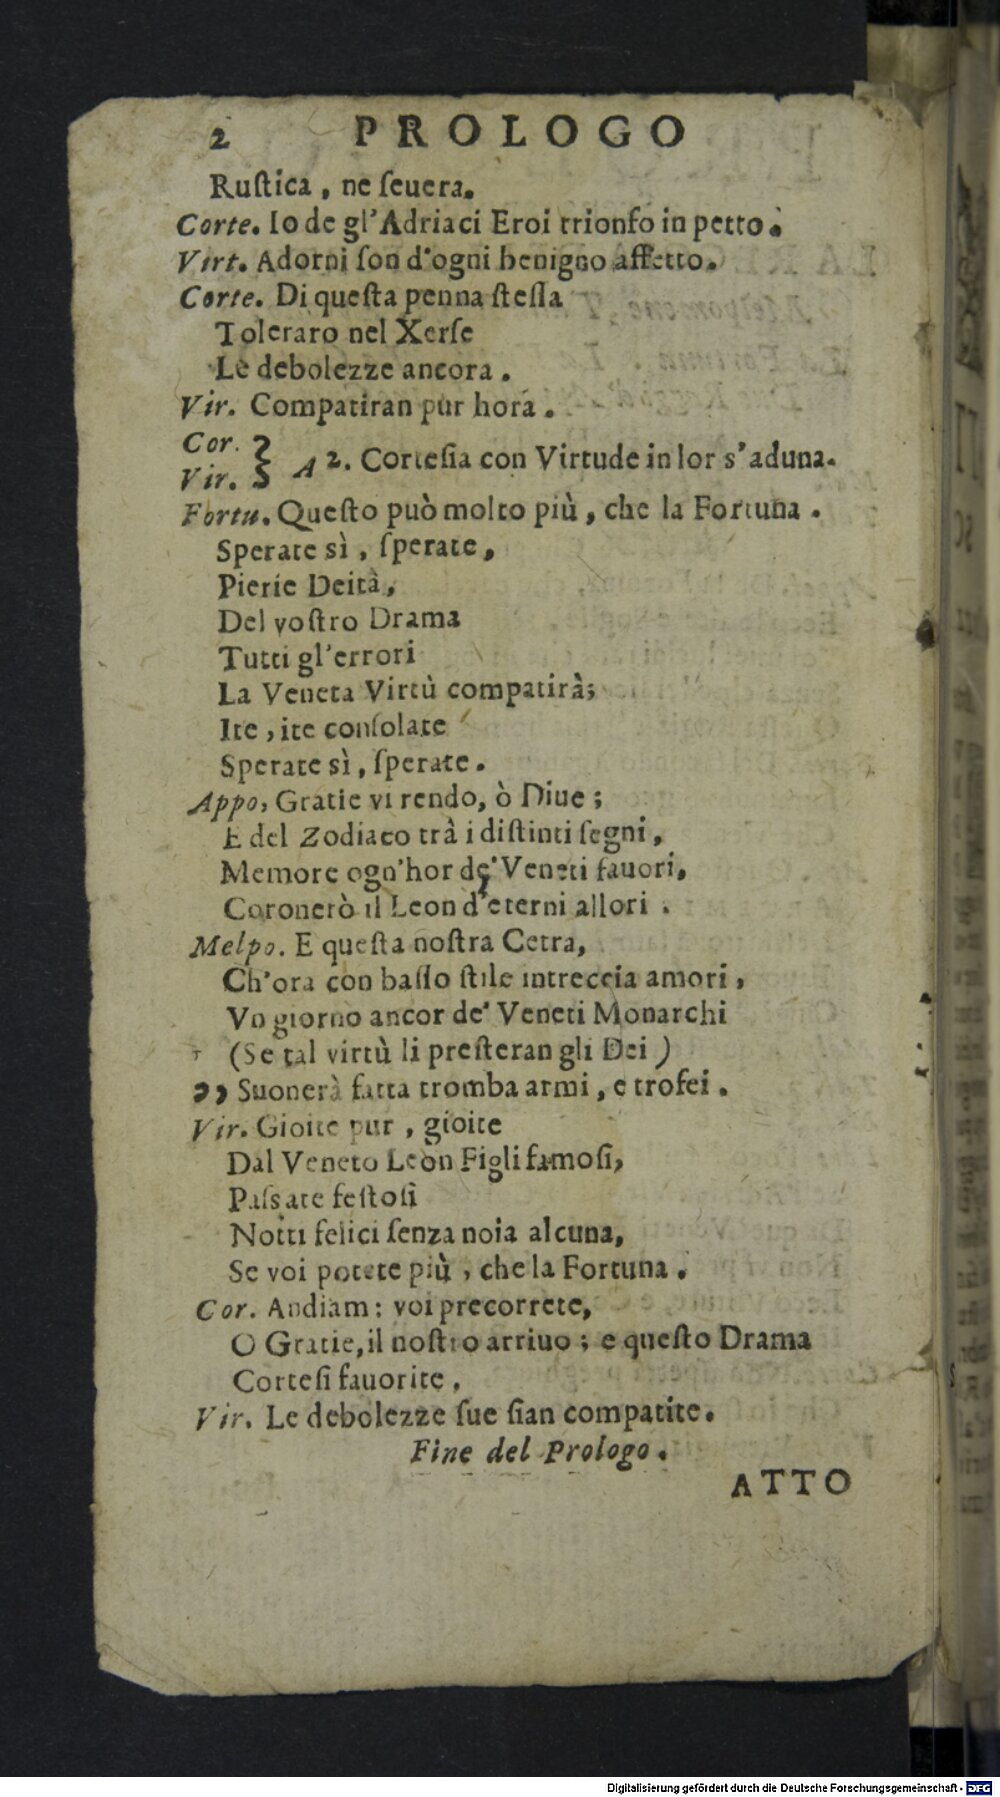 2 PROLOGO
Ruſtica, ne ſeuera.
Corte. Io de gl'Adriaci Eroi trionfo in petto.
Virt. Adorni ſon d'ogni benigno affetto.
Corte. Di queſta penna ſteſſa
Toleraro nel Xerſe
Le debolezze ancora.
Vir. Compatiran pur hora.
Cor.
Vir. } A 2. Corteſia con Virtude in lor s'aduna.
Fortu. Queſto può molto più, che la Fortuna.
Sperate sì, ſperate,
Pierie Deità,
Del voſtro Drama
Tutti gl'errori
La Veneta Virtù compatirà;
Ite, ite conſolate
Sperate sì, ſperate.
Appo, Gratie vi rendo, ò Diue;
E del Zodiaco trà i diſtinti ſegni,
Memore ogn'hor de' Veneti fauori,
Coronerò il Leon d'eterni allori.
Melpo. E queſta noſtra Cetra,
Ch'ora con baſſo ſtile intreccia amori,
Vn giorno ancor de' Veneti Monarchi
(Se tal virtù li preſteran gli Dei)
,, Suonerà fatta tromba armi, e trofei.
Vir. Gioite pur, gioite
Dal Veneto Leon Figli famoſi,
Paſsate feſtoſi
Notti felici ſenza noia alcuna,
Se voi potete più, che la Fortuna.
Cor. Andiam: voi precorrete,
O Gratie, il noſtro arriuo; e queſto Drama
Corteſi fauorite.
Vir. Le debolezze ſue ſian compatite.
Fine del Prologo.
ATTO
Digitalisierung gefördert durch die Deutsche Forschungsgemeinschaft - DFG